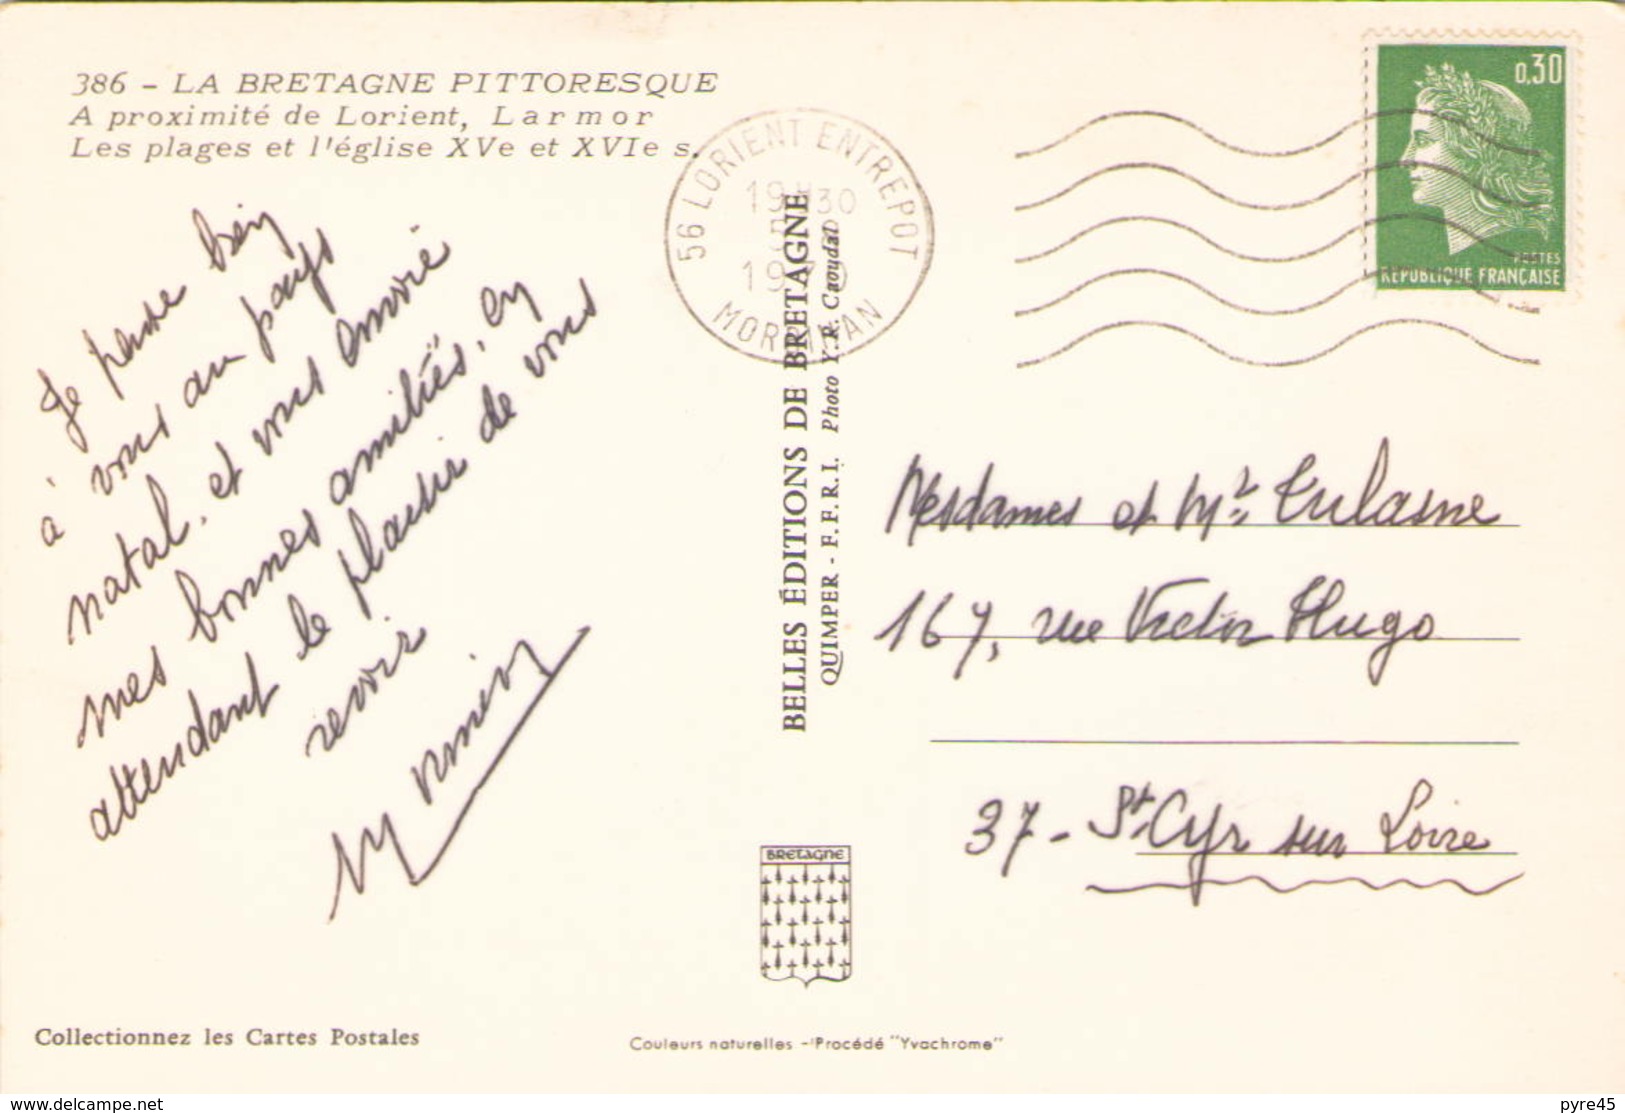 386 - LA BRETAGNE PITTORESQUE
A proximité de Lorient, Larmor
Les plages et l'église XVe et XVIe s.
Je pense bien
à vous au pays
natal, et vous envoie
mes bonnes amitiés, en
attendant le plaisir de vous
revoir
56 LORIENT ENTREPOT
19H30
1970
MORBIHAN
0,30
POSTES
RÉPUBLIQUE FRANÇAISE
BELLES ÉDITIONS DE BRETAGNE
QUIMPER - F.F.R.I. Photo Y.R. Caoudal
Mesdames et Mr Tulasne
167, rue Victor Hugo
37 - St-Cyr sur Loire
BRETAGNE
Collectionnez les Cartes Postales
Couleurs naturelles - Procédé "Yvachrome"
www.delcampe.net
pyre45